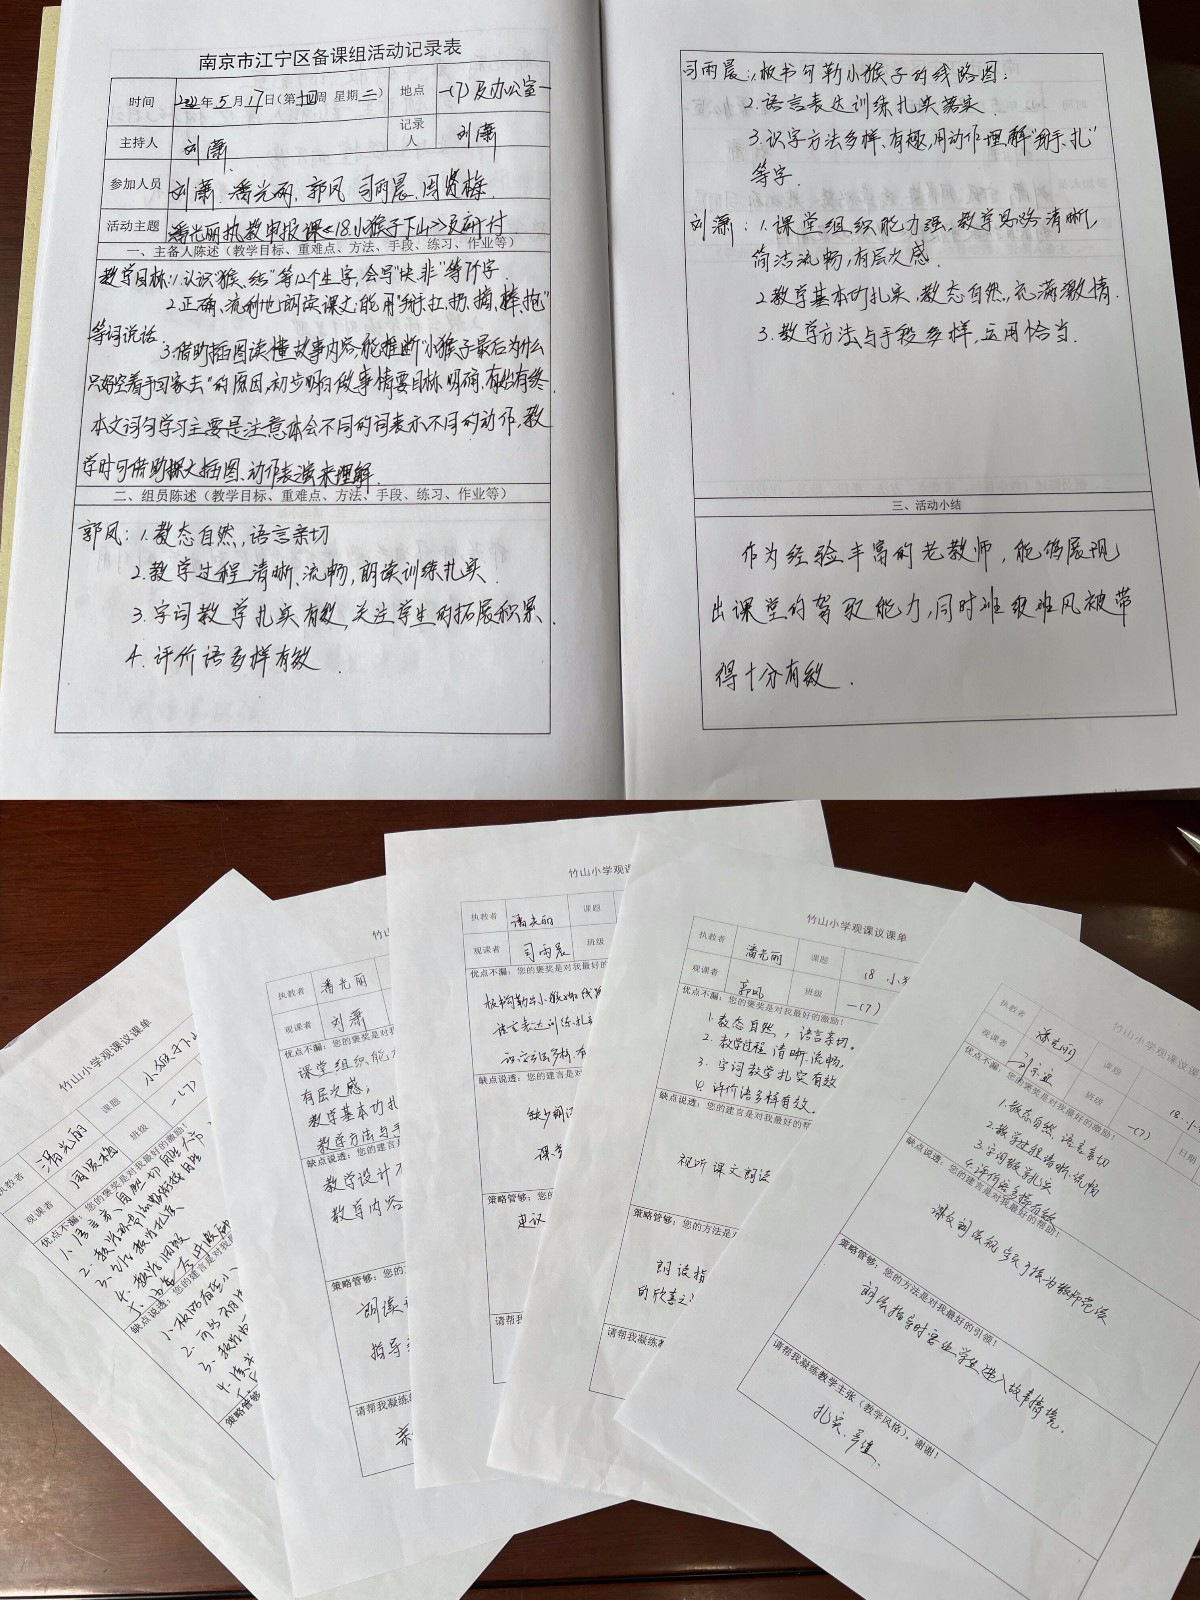 南京市江宁区备课组活动记录表
时间 2022年5月17日(第十四周 星期二) 地点 一(7)及办公室一
主持人 刘萧 记录人 刘萧
参加人员 刘萧、潘光丽、郭凤、司雨晨、周贤梅
活动主题 潘光丽执教申报课《18.小猴子下山》及研讨
一、主备人陈述(教学目标、重难点、方法、手段、练习、作业等)
教学目标:1.认识“猴、结”等12个生字,会写“块、非”等7个字.
2.正确、流利地朗读课文,能用“掰、扛、扔、摘、捧、抱”
等词说话.
3.借助插图读懂故事内容,能推断“小猴子最后为什么
只好空着手回家去”的原因,初步明白做事情要目标明确、有始有终.
本文词句学习主要是注意体会不同的词表示不同的动作,教
学时可借助课文插图、动作表演来理解.
二、组员陈述(教学目标、重难点、方法、手段、练习、作业等)
郭凤:1.教态自然,语言亲切
2.教学过程清晰、流畅,朗读训练扎实.
3.字词教学扎实有效,关注学生的拓展积累.
4.评价语多样有效.
司雨晨:1.板书勾勒小猴子的线路图;
2.语言表达训练扎实落实.
3.识字方法多样、有趣,用动作理解“掰、扎”
等字.
刘萧:1.课堂组织能力强,教学思路清晰,
简洁流畅,有层次感.
2.教学基本功扎实,教态自然,充满激情.
3.教学方法与手段多样,运用恰当.
三、活动小结
作为经验丰富的老教师,能够展现
出课堂的驾驭能力,同时班级班风被带
得十分有效.
竹山小学观课议课单
执教者 潘光丽 课题
观课者 周贤梅 班级 一(7)
优点不漏:您的褒奖是对我最好的激励!
缺点说透:您的建言是对我
策略管够
竹
执教者 潘光丽
观课者 刘萧
优点不漏:您的褒奖是对我
课堂组织能
有层次感;
教学基本功扎
教学方法与手
缺点说透:您的建言
教学设计
教学内容
策略管够:您的方
朗读
指导
请帮我凝练
竹山小学观课
执教者 潘光丽 课题
观课者 司雨晨 班级
优点不漏:您的褒奖是对我最好的
板书勾勒出小猴子的线路
语言表达训练扎实
识字方法多样、有
缺点说透:您的建言是对我最
缺少朗读
策略管够:您的方法是
建议
请帮我凝练教
竹山小学观课议课单
执教者 潘光丽 课题 18.小猴
观课者 郭凤 班级 一(7)
优点不漏:您的褒奖是对我最好的激励!
1.教态自然,语言亲切。
2.教学过程清晰、流畅,
3.字词教学扎实有效
4.评价语多样有效.
缺点说透:您的建言是对我最好的帮
课文朗读
策略管够:您的方法是对
朗读指
请帮我凝练教
竹山小学观课议课单
执教者 潘光丽 课题 18.小
观课者 班级 一(7) 日期
优点不漏:您的褒奖是对我最好的激励!
1.教态自然、语言亲切
2.教学过程清晰、流畅
3.字词教学扎实
4.评价语多样有效
缺点说透:您的建言是对我最好的帮助!
策略管够:您的方法是对我最好的引领!
朗读指导时要让学生进入故事情境.
请帮我凝练教学主张(教学风格),谢谢!
扎实、